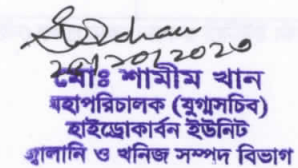 মোঃ শামীম খান
মহাপরিচালক (যুগ্মসচিব)
হাইড্রোকার্বন ইউনিট
জ্বালানি ও খনিজ সম্পদ বিভাগ